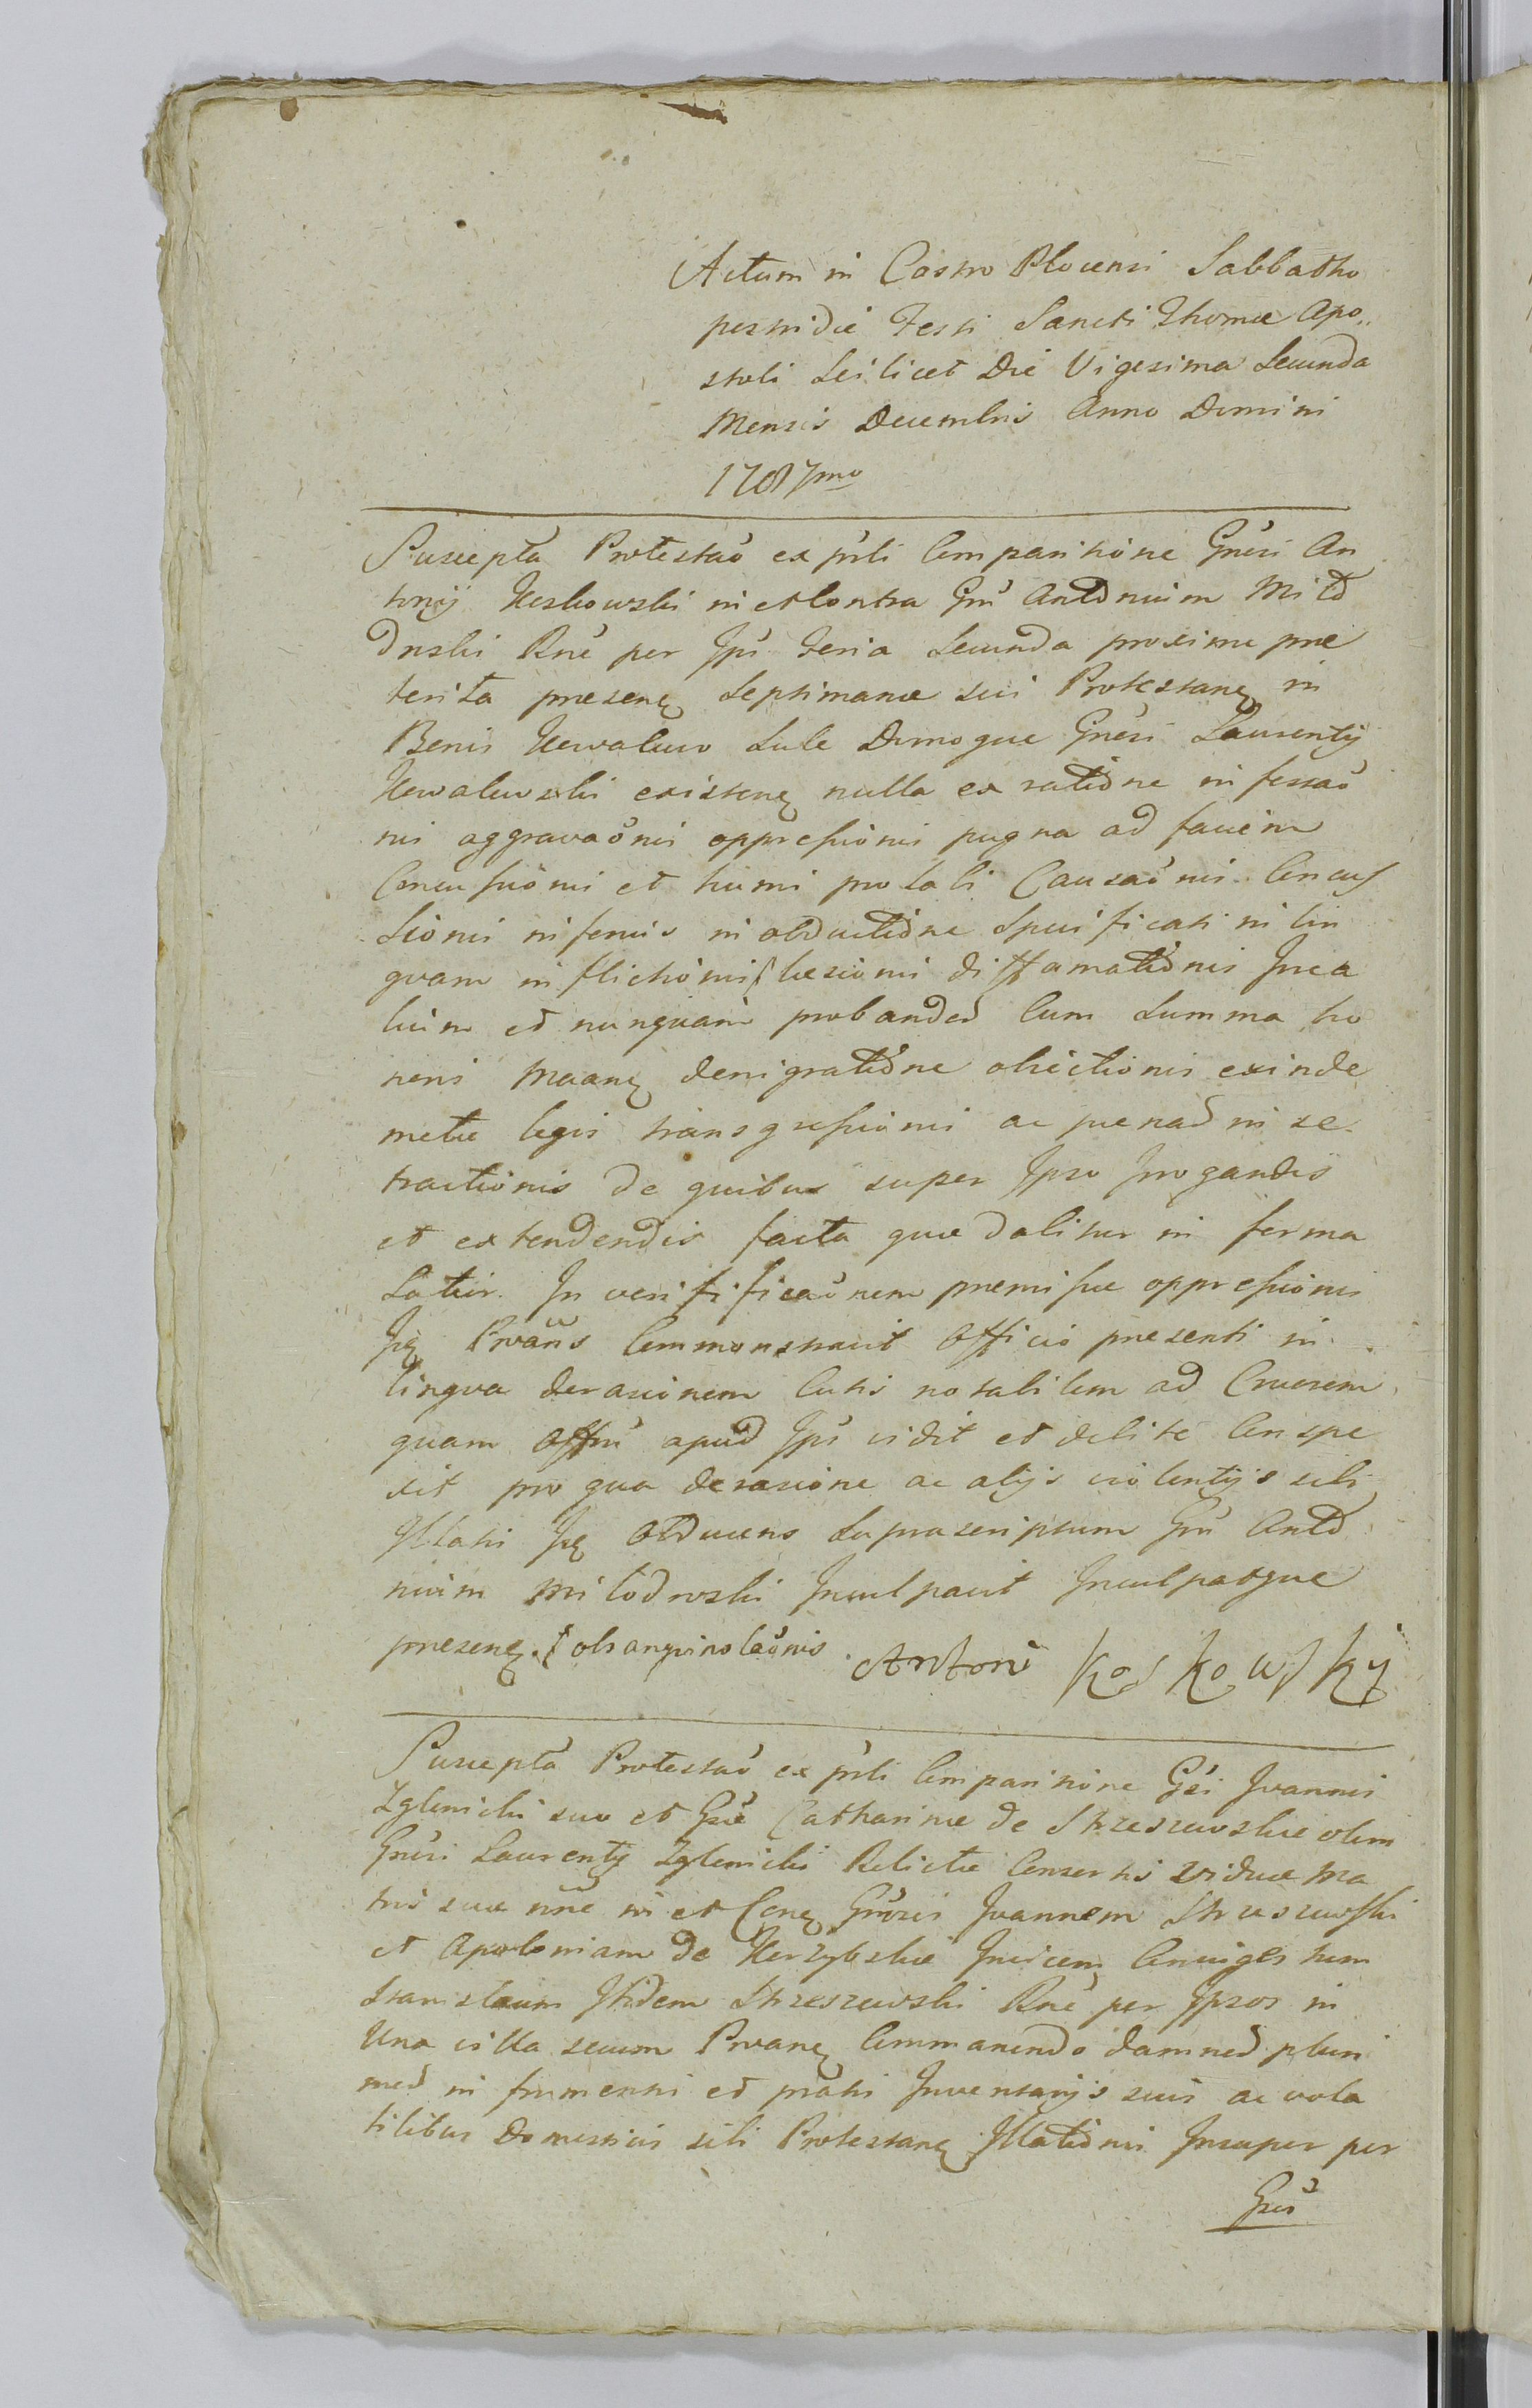 Actum in Castro Plocensi Sabbatho
postridie Festi Sancti Thomæ Apo„
stoli Scilicet Die Vigesima Secunda
Mensis Decembris Anno Domini
1787mo
Suscepta Protestaõ ex prli Comparitione Gnersi An
tonij Koskowski in et Contra Grm Antonium Miło
dnski Rne per Ipm Feria Secunda proxime præ
terita præsenę Septimanæ sui Protestanę in
Bonis Kowalewo Sule Domoque Gnersi Laurentij
Kowalewski existenę nulla ex ratione infestaõ
nis aggravaõnis oppressionis pugna ad faciem
Concussionis et humi prostati Causaõnis Concus
sionis inferius in obductione Specificati in lin
gvam inflictionis læsionis diffamationis Inea
tium et nunquam proband Cum Summa ho
noris Maanę denigratione obiectionis exinde
metu legis transgressionis ac pænad in se
tractionis de quibus super Ipso Irrogandis
et extendendis facta quæ dabitur in forma
Latior. In verifificaõnem præmissæ oppressionis
Ię Prvans Commonstravit Officio præsenti in
lingva derasionem Cutis notabilem ad Cruorem
quam Offm apud Ipm vidit et debite Conspe
xit pro qua derasione ac alijs violentijs sibi
Illatis Ię Obducens Suprascriptum Grm Anto
nium Miłodroski Inculpavit Inculpatque
præsenę. obsangvinolaõnis. Antoni Koskowsky
Suscepta Protestaõ ex prli Comparitione Gsi Joannis
Zglenicki suo et Gsæ Catharinæ de Strzeszewskie olim
Gnrsi Laurentij Zglenicki Relictæ Consortis Viduæ Ma
tris suæ nne in et Conę Gnrsos Joannem Strzeszewski
et Apoloniam de Korzybskie Invicem Coniuges tum
Stanislaum Itidem Strzeszewski Rne per Ipsos in
Una villa secum Prvanę Commanendo damnod pluri
mod in frumentis et pratis Inventarijs suis ac vola
tilibus Domesticis sibi Protestanę Illationis Insuper per
Gsos